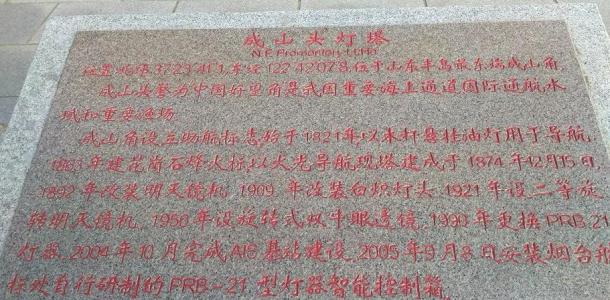 成山头灯塔
N.E Promontory LtHo
位置:北纬37 23 41.1,东经122 42 07.8,位于山东半岛最东端成山角,
成山头誉为中国好望角是我国重要海上通道国际通航水
域和重要渔场
成山角设立助航标志始于1821年,以木杆悬挂油灯用于导航,
1863年建花岗石烽火标,以火光导航现塔建成于1874年12月15日,
1892年改装明灭镜机,1909,年改装白炽灯头,1921年设二等旋
转明灭镜机,1950年设旋转式双牛眼透镜,1990年更换PRB-21
灯器,2004年10月完成AIS基站建设,2005年9月8日安装烟台航
标处自行研制的PRB-21型灯器智能控制箱